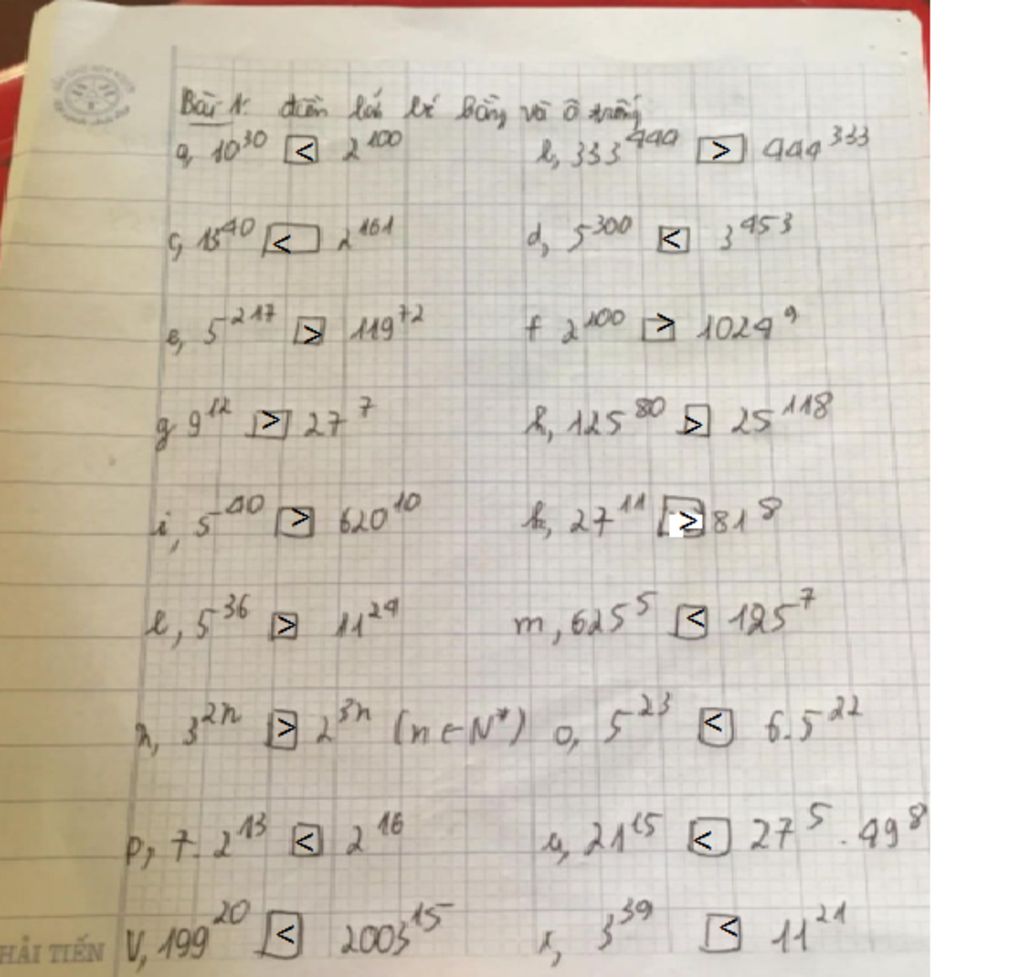 Bài 1: điền lớn bé bằng vào ô trống
a, 10³⁰ < 2¹⁰⁰ b, 333⁴⁴⁴ > 444³³³
c, 13⁴⁰ < 2¹⁶¹ d, 5³⁰⁰ < 3⁴⁵³
e, 5²¹⁷ > 119⁷² f 2¹⁰⁰ > 1024⁹
g 9¹² > 27⁷ h, 125⁸⁰ > 25¹¹⁸
i, 5⁴⁰ > 620¹⁰ k, 27¹¹ > 81⁸
l, 5³⁶ > 11²⁴ m, 625⁵ < 125⁷
n, 3²ⁿ > 2³ⁿ (n ∈ N*) o, 5²³ < 6.5²²
p, 7.2¹³ < 2¹⁶ u, 21¹⁵ < 27⁵.49⁸
V, 199²⁰ < 2003¹⁵ x, 3³⁹ < 11²¹
HẢI TIẾN